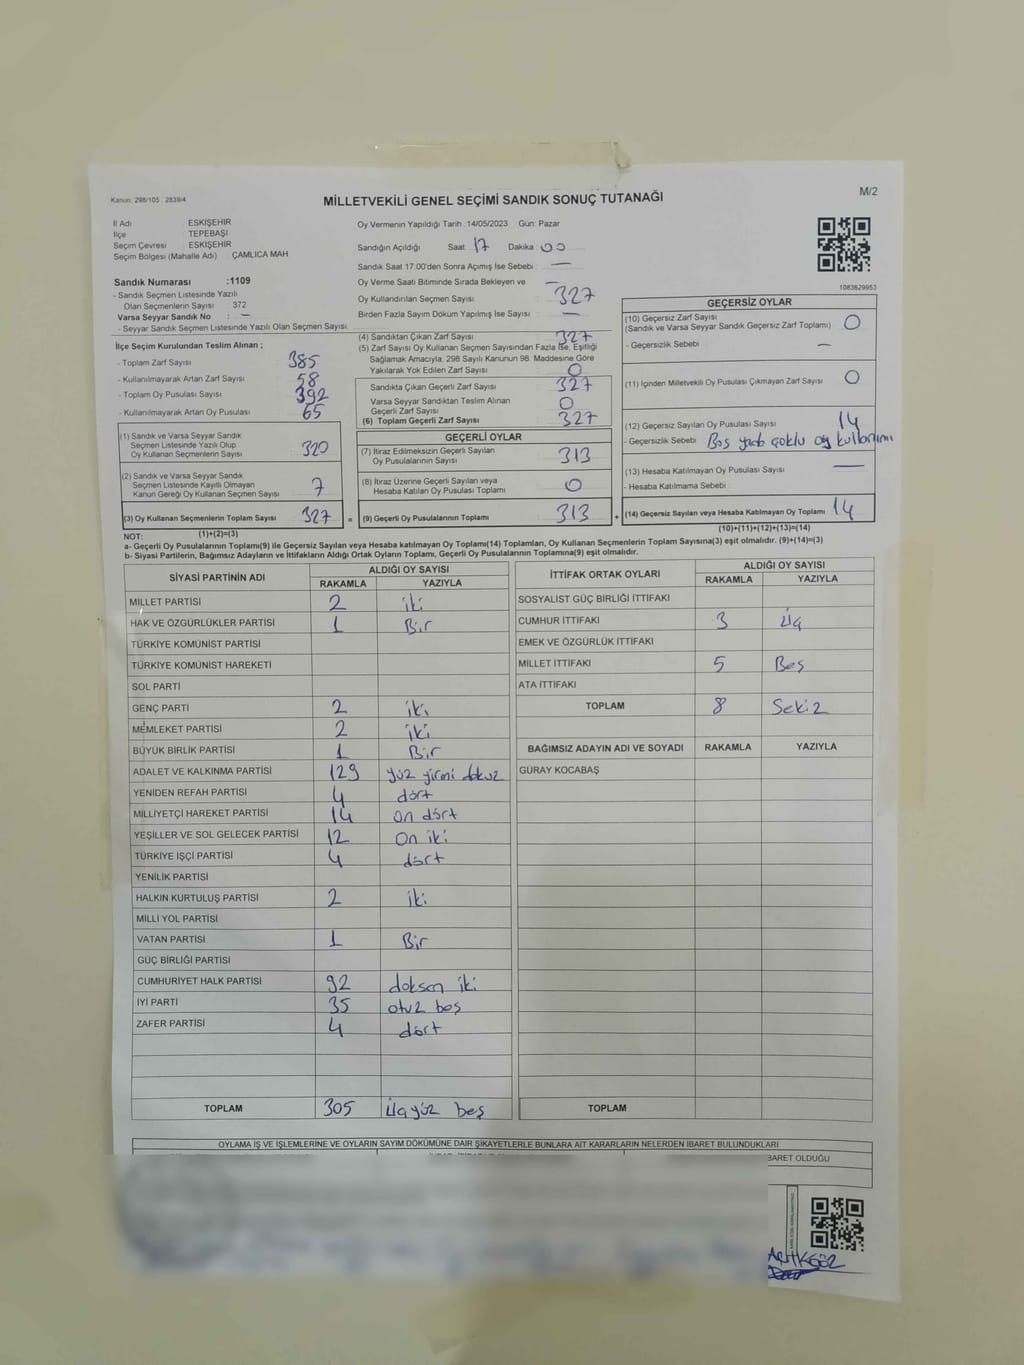 Kanun: 298/105 2839/4
MİLLETVEKİLİ GENEL SEÇİMİ SANDIK SONUÇ TUTANAĞI
M/2
İl Adı ESKİŞEHİR
İlçe TEPEBAŞI
Seçim Çevresi ESKİŞEHİR
Seçim Bölgesi (Mahalle Adı) ÇAMLICA MAH
Oy Vermenin Yapıldığı Tarih :14/05/2023 Gün: Pazar
Sandığın Açıldığı Saat 17 Dakika 00
Sandık Saat 17:00'den Sonra Açımış İse Sebebi: —
Oy Verme Saati Bitiminde Sırada Bekleyen ve —
Oy Kullandırılan Seçmen Sayısı 327
Birden Fazla Sayım Döküm Yapılmış İse Sayısı : —
1083629953
Sandık Numarası :1109
- Sandık Seçmen Listesinde Yazılı
Olan Seçmenlerin Sayısı 372
Varsa Seyyar Sandık No : —
- Seyyar Sandık Seçmen Listesinde Yazılı Olan Seçmen Sayısı:
İlçe Seçim Kurulundan Teslim Alınan ;
- Toplam Zarf Sayısı 385
- Kullanılmayarak Artan Zarf Sayısı 58
- Toplam Oy Pusulası Sayısı 392
- Kullanılmayarak Artan Oy Pusulası 65
(1) Sandık ve Varsa Seyyar Sandık
Seçmen Listesinde Yazılı Olup
Oy Kullanan Seçmenlerin Sayısı 320
(2) Sandık ve Varsa Seyyar Sandık
Seçmen Listesinde Kayıtlı Olmayan
Kanun Gereği Oy Kullanan Seçmen Sayısı 7
(3) Oy Kullanan Seçmenlerin Toplam Sayısı 327 =
(1)+(2)=(3)
(4) Sandıktan Çıkan Zarf Sayısı 327
(5) Zarf Sayısı Oy Kullanan Seçmen Sayısından Fazla İse, Eşitliği
Sağlamak Amacıyla, 298 Sayılı Kanunun 98. Maddesine Göre
Yakılarak Yok Edilen Zarf Sayısı 0
Sandıkta Çıkan Geçerli Zarf Sayısı 327
Varsa Seyyar Sandıktan Teslim Alınan
Geçerli Zarf Sayısı 0
(6) Toplam Geçerli Zarf Sayısı 327
GEÇERLİ OYLAR
(7) İtiraz Edilmeksizin Geçerli Sayılan
Oy Pusulalarının Sayısı 313
(8) İtiraz Üzerine Geçerli Sayılan veya
Hesaba Katılan Oy Pusulası Toplamı 0
(9) Geçerli Oy Pusulalarının Toplamı 313 +
GEÇERSİZ OYLAR
(10) Geçersiz Zarf Sayısı
(Sandık ve Varsa Seyyar Sandık Geçersiz Zarf Toplamı) 0
- Geçersizlik Sebebi —
(11) İçinden Milletvekili Oy Pusulası Çıkmayan Zarf Sayısı 0
(12) Geçersiz Sayılan Oy Pusulası Sayısı 14
- Geçersizlik Sebebi Boş çoklu oy kullanımı
(13) Hesaba Katılmayan Oy Pusulası Sayısı —
- Hesaba Katılmama Sebebi
(14) Geçersiz Sayılan veya Hesaba Katılmayan Oy Toplamı 14
(10)+(11)+(12)+(13)=(14)
NOT:
a- Geçerli Oy Pusulalarının Toplamı(9) ile Geçersiz Sayılan veya Hesaba katılmayan Oy Toplamı(14) Toplamları, Oy Kullanan Seçmenlerin Toplam Sayısına(3) eşit olmalıdır. (9)+(14)=(3)
b- Siyasi Partilerin, Bağımsız Adayların ve İttifakların Aldığı Ortak Oyların Toplamı, Geçerli Oy Pusulalarının Toplamına(9) eşit olmalıdır.
SİYASİ PARTİNİN ADI ALDIĞI OY SAYISI
RAKAMLA YAZIYLA
MİLLET PARTİSİ 2 iki
HAK VE ÖZGÜRLÜKLER PARTİSİ 1 Bir
TÜRKİYE KOMÜNİST PARTİSİ
TÜRKİYE KOMÜNİST HAREKETİ
SOL PARTİ
GENÇ PARTİ 2 iki
MEMLEKET PARTİSİ 2 iki
BÜYÜK BİRLİK PARTİSİ 1 Bir
ADALET VE KALKINMA PARTİSİ 129 yüz yirmi dokuz
YENİDEN REFAH PARTİSİ 4 dört
MİLLİYETÇİ HAREKET PARTİSİ 14 on dört
YEŞİLLER VE SOL GELECEK PARTİSİ 12 On iki
TÜRKİYE İŞÇİ PARTİSİ 4 dört
YENİLİK PARTİSİ
HALKIN KURTULUŞ PARTİSİ 2 iki
MİLLİ YOL PARTİSİ
VATAN PARTİSİ 1 Bir
GÜÇ BİRLİĞİ PARTİSİ
CUMHURİYET HALK PARTİSİ 92 doksan iki
İYİ PARTİ 35 otuz beş
ZAFER PARTİSİ 4 dört
TOPLAM 305 Üçyüz beş
İTTİFAK ORTAK OYLARI ALDIĞI OY SAYISI
RAKAMLA YAZIYLA
SOSYALİST GÜÇ BİRLİĞİ İTTİFAKI
CUMHUR İTTİFAKI 3 Üç
EMEK VE ÖZGÜRLÜK İTTİFAKI
MİLLET İTTİFAKI 5 Beş
ATA İTTİFAKI
TOPLAM 8 Sekiz
BAĞIMSIZ ADAYIN ADI VE SOYADI RAKAMLA YAZIYLA
GÜRAY KOCABAŞ
TOPLAM
OYLAMA İŞ VE İŞLEMLERİNE VE OYLARIN SAYIM DÖKÜMÜNE DAİR ŞİKAYETLERLE BUNLARA AİT KARARLARIN NELERDEN İBARET BULUNDUKLARI
BARET OLDUĞU